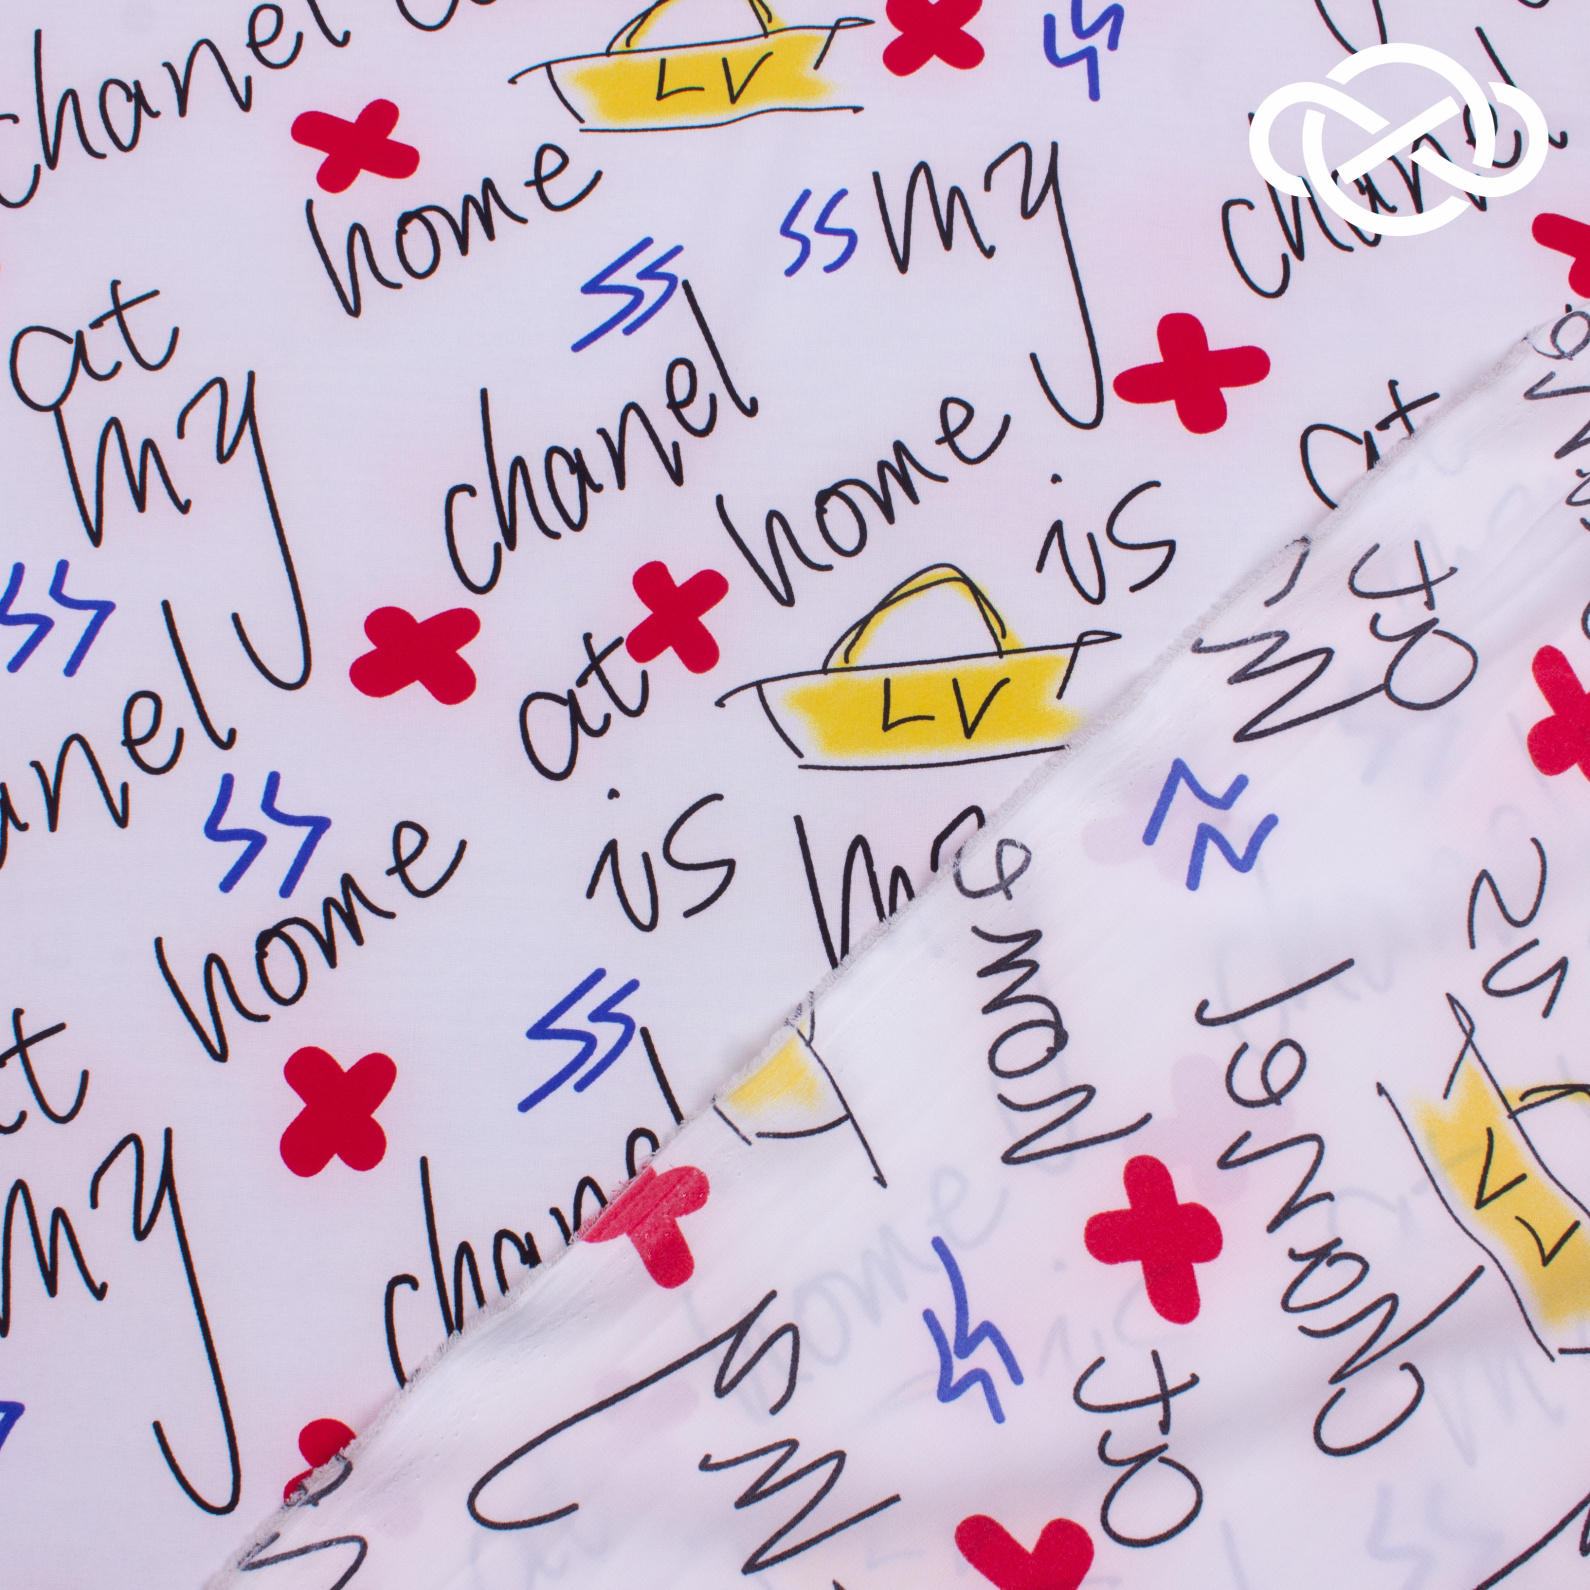 chanel
LV
home
at
my
ss
my
chanel
ss
chanel
home
is
at
LV
at
ss
anel
ss
home
is
my
ss
my
chanel
home
chanel
is
LV
my
at
at